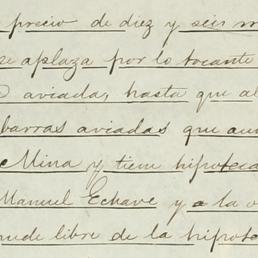 precio de diez y seis m
se aplaza por lo tocante
aviada, hasta que al
barras aviadas que aun
Mina y tiene hipoteca
Manuel Echave y a la v
ede libre de la hipote